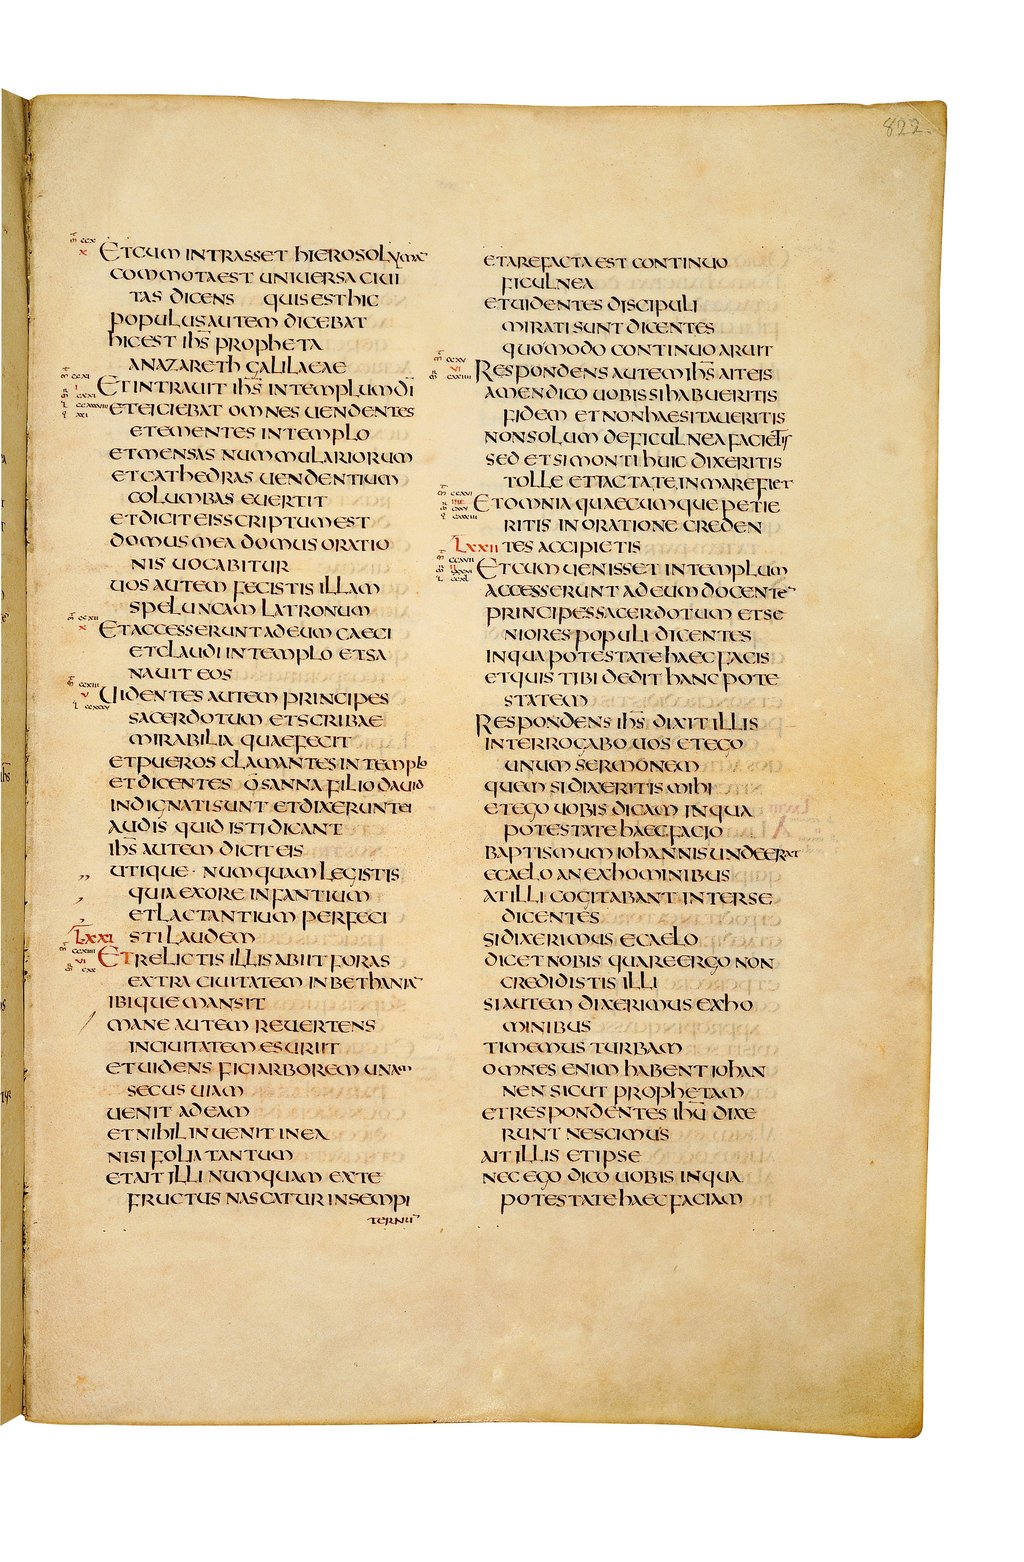 822.
ET CUM INTRASSET HIEROSOLYMA
COMMOTA EST UNIUERSA CIUI
TAS DICENS QUIS EST HIC
POPULUS AUTEM DICEBAT
HIC EST IHS PROPHETA
A NAZARETH GALILAEAE
ET INTRAUIT IHS IN TEMPLUM DI
ET EICIEBAT OMNES UENDENTES
ET EMENTES IN TEMPLO
ET MENSAS NUMMULARIORUM
ET CATHEDRAS UENDENTIUM
COLUMBAS EUERTIT
ET DICIT EIS SCRIPTUM EST
DOMUS MEA DOMUS ORATIO
NIS UOCABITUR
UOS AUTEM FECISTIS ILLAM
SPELUNCAM LATRONUM
ET ACCESSERUNT AD EUM CAECI
ET CLAUDI IN TEMPLO ET SA
NAUIT EOS
UIDENTES AUTEM PRINCIPES
SACERDOTUM ET SCRIBAE
MIRABILIA QUAE FECIT
ET PUEROS CLAMANTES IN TEMPLO
ET DICENTES OSANNA FILIO DAUID
INDIGNATI SUNT ET DIXERUNT EI
AUDIS QUID ISTI DICANT
IHS AUTEM DICIT EIS
UTIQUE · NUMQUAM LEGISTIS
QUIA EX ORE INFANTIUM
ET LACTANTIUM PERFECI
LXXI STI LAUDEM
ET RELICTIS ILLIS ABIIT FORAS
EXTRA CIUITATEM IN BETHANIA
IBIQUE MANSIT
MANE AUTEM REUERTENS
IN CIUITATEM ESURIIT
ET UIDENS FICI ARBOREM UNAM
SECUS UIAM
UENIT AD EAM
ET NIHIL INUENIT IN EA
NISI FOLIA TANTUM
ET AIT ILLI NUMQUAM EX TE
FRUCTUS NASCATUR IN SEMPI
TERNU
ET AREFACTA EST CONTINUO
FICULNEA
ET UIDENTES DISCIPULI
MIRATI SUNT DICENTES
QUOMODO CONTINUO ARUIT
RESPONDENS AUTEM IHS AIT EIS
AMEN DICO UOBIS SI HABUERITIS
FIDEM ET NON HAESITAUERITIS
NON SOLUM DE FICULNEA FACIETIS
SED ET SI MONTI HUIC DIXERITIS
TOLLE ET IACTA TE IN MARE FIET
ET OMNIA QUAECUMQUE PETIE
RITIS IN ORATIONE CREDEN
LXXII TES ACCIPIETIS
ET CUM UENISSET IN TEMPLUM
ACCESSERUNT AD EUM DOCENTE
PRINCIPES SACERDOTUM ET SE
NIORES POPULI DICENTES
IN QUA POTESTATE HAEC FACIS
ET QUIS TIBI DEDIT HANC POTE
STATEM
RESPONDENS IHS DIXIT ILLIS
INTERROGABO UOS ET EGO
UNUM SERMONEM
QUEM SI DIXERITIS MIHI
ET EGO UOBIS DICAM IN QUA
POTESTATE HAEC FACIO
BAPTISMUM IOHANNIS UNDE ERAT
E CAELO AN EX HOMINIBUS
AT ILLI COGITABANT INTER SE
DICENTES
SI DIXERIMUS E CAELO
DICET NOBIS QUARE ERGO NON
CREDIDISTIS ILLI
SI AUTEM DIXERIMUS EX HO
MINIBUS
TIMEMUS TURBAM
OMNES ENIM HABENT IOHAN
NEN SICUT PROPHETAM
ET RESPONDENTES IHU DIXE
RUNT NESCIMUS
AIT ILLIS ET IPSE
NEC EGO DICO UOBIS IN QUA
POTESTATE HAEC FACIAM